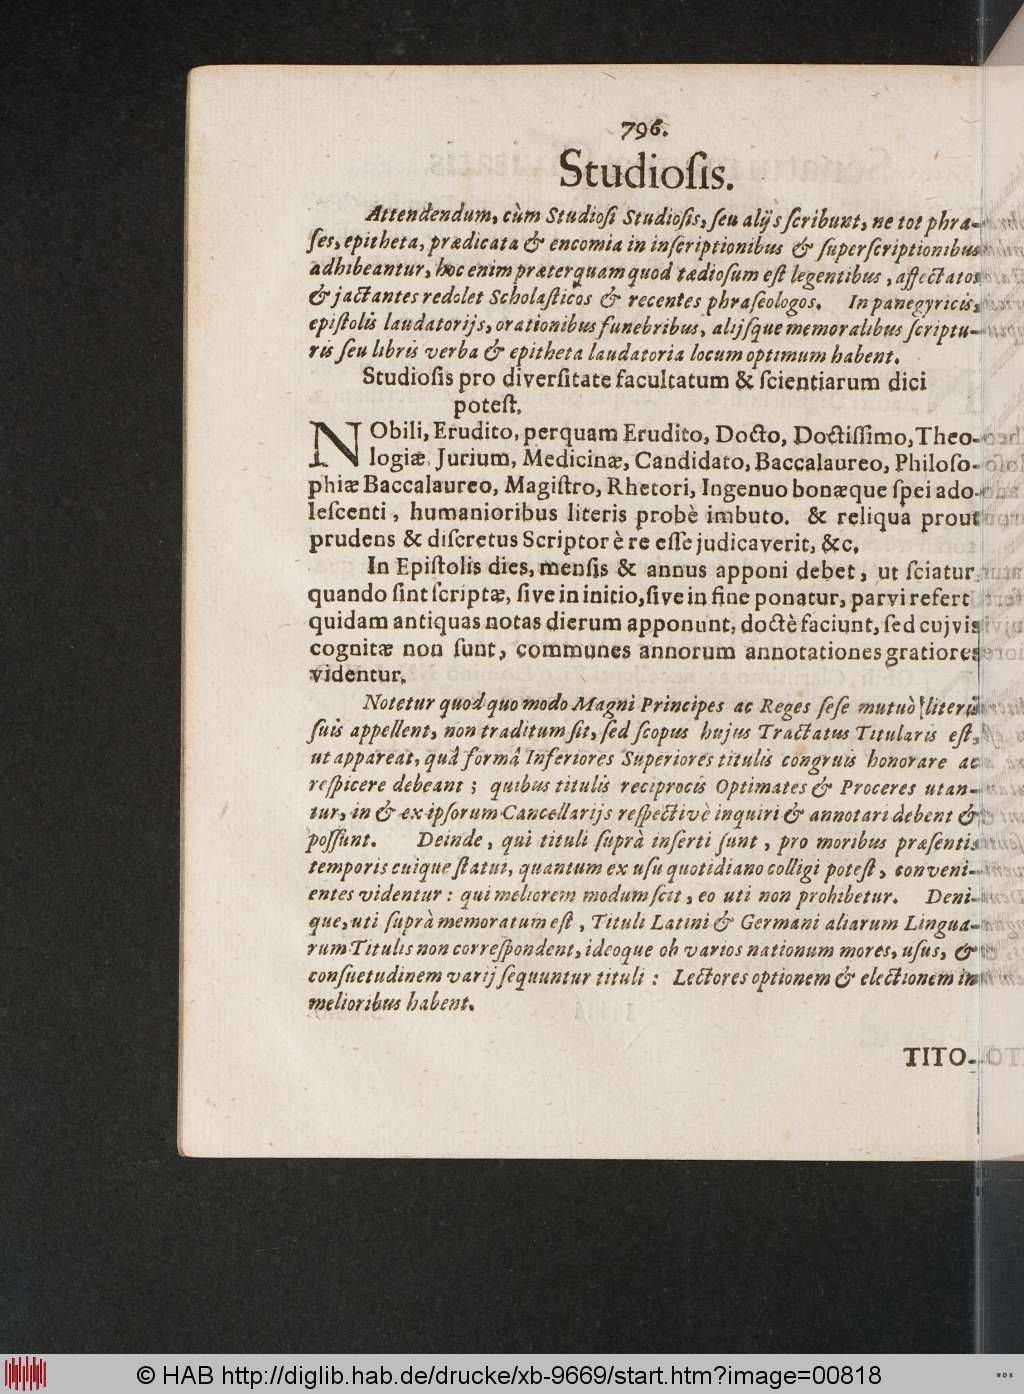 796.
Studioſis.
Attendendum, cùm Studioſi Studioſis, ſeu alijs ſcribunt, ne tot phra-
ſes, epitheta, prædicata & encomia in inſcriptionibus & ſuperſcriptionibus
adhibeantur, hoc enim præterquam quod tædioſum eſt legentibus, affectatos
& jactantes redolet Scholaſticos & recentes phraſeologos. In panegyricis,
epiſtolis laudatorijs, orationibus funebribus, alijſque memoralibus ſcriptu-
ris ſeu libris verba & epitheta laudatoria locum optimum habent.
Studioſis pro diverſitate facultatum & ſcientiarum dici
poteſt.
NObili, Erudito, perquam Erudito, Docto, Doctiſſimo, Theo-
logiæ, Jurium, Medicinæ, Candidato, Baccalaureo, Philoſo-
phiæ Baccalaureo, Magiſtro, Rhetori, Ingenuo bonæque ſpei ado-
leſcenti, humanioribus literis probè imbuto. & reliqua prout
prudens & diſcretus Scriptor è re eſſe judicaverit, &c.
In Epiſtolis dies, menſis & annus apponi debet, ut ſciatur
quando ſint ſcriptæ, ſive in initio, ſive in fine ponatur, parvi refert
quidam antiquas notas dierum apponunt, doctè faciunt, ſed cujvis
cognitæ non ſunt, communes annorum annotationes gratiores
videntur.
Notetur quod quo modo Magni Principes ac Reges ſeſe mutuò literis
ſuis appellent, non traditum ſit, ſed ſcopus hujus Tractatus Titularis eſt,
ut appareat, quâ formâ Inferiores Superiores titulis congruis honorare ac
reſpicere debeant; quibus titulis reciprocis Optimates & Proceres utan-
tur, in & ex ipſorum Cancellarijs reſpectivè inquiri & annotari debent &
poſſunt. Deinde, qui tituli ſuprà inſerti ſunt, pro moribus præſentis
temporis cuique ſtatui, quantum ex uſu quotidiano colligi poteſt, conveni-
entes videntur: qui meliorem modum ſcit, eo uti non prohibetur. Deni-
que, uti ſuprà memoratum eſt, Tituli Latini & Germani aliarum Lingua-
rum Titulis non correſpondent, ideoque ob varios nationum mores, uſus, &
conſuetudinem varij ſequuntur tituli: Lectores optionem & electionem in
melioribus habent.
TITO-
© HAB http://diglib.hab.de/drucke/xb-9669/start.htm?image=00818